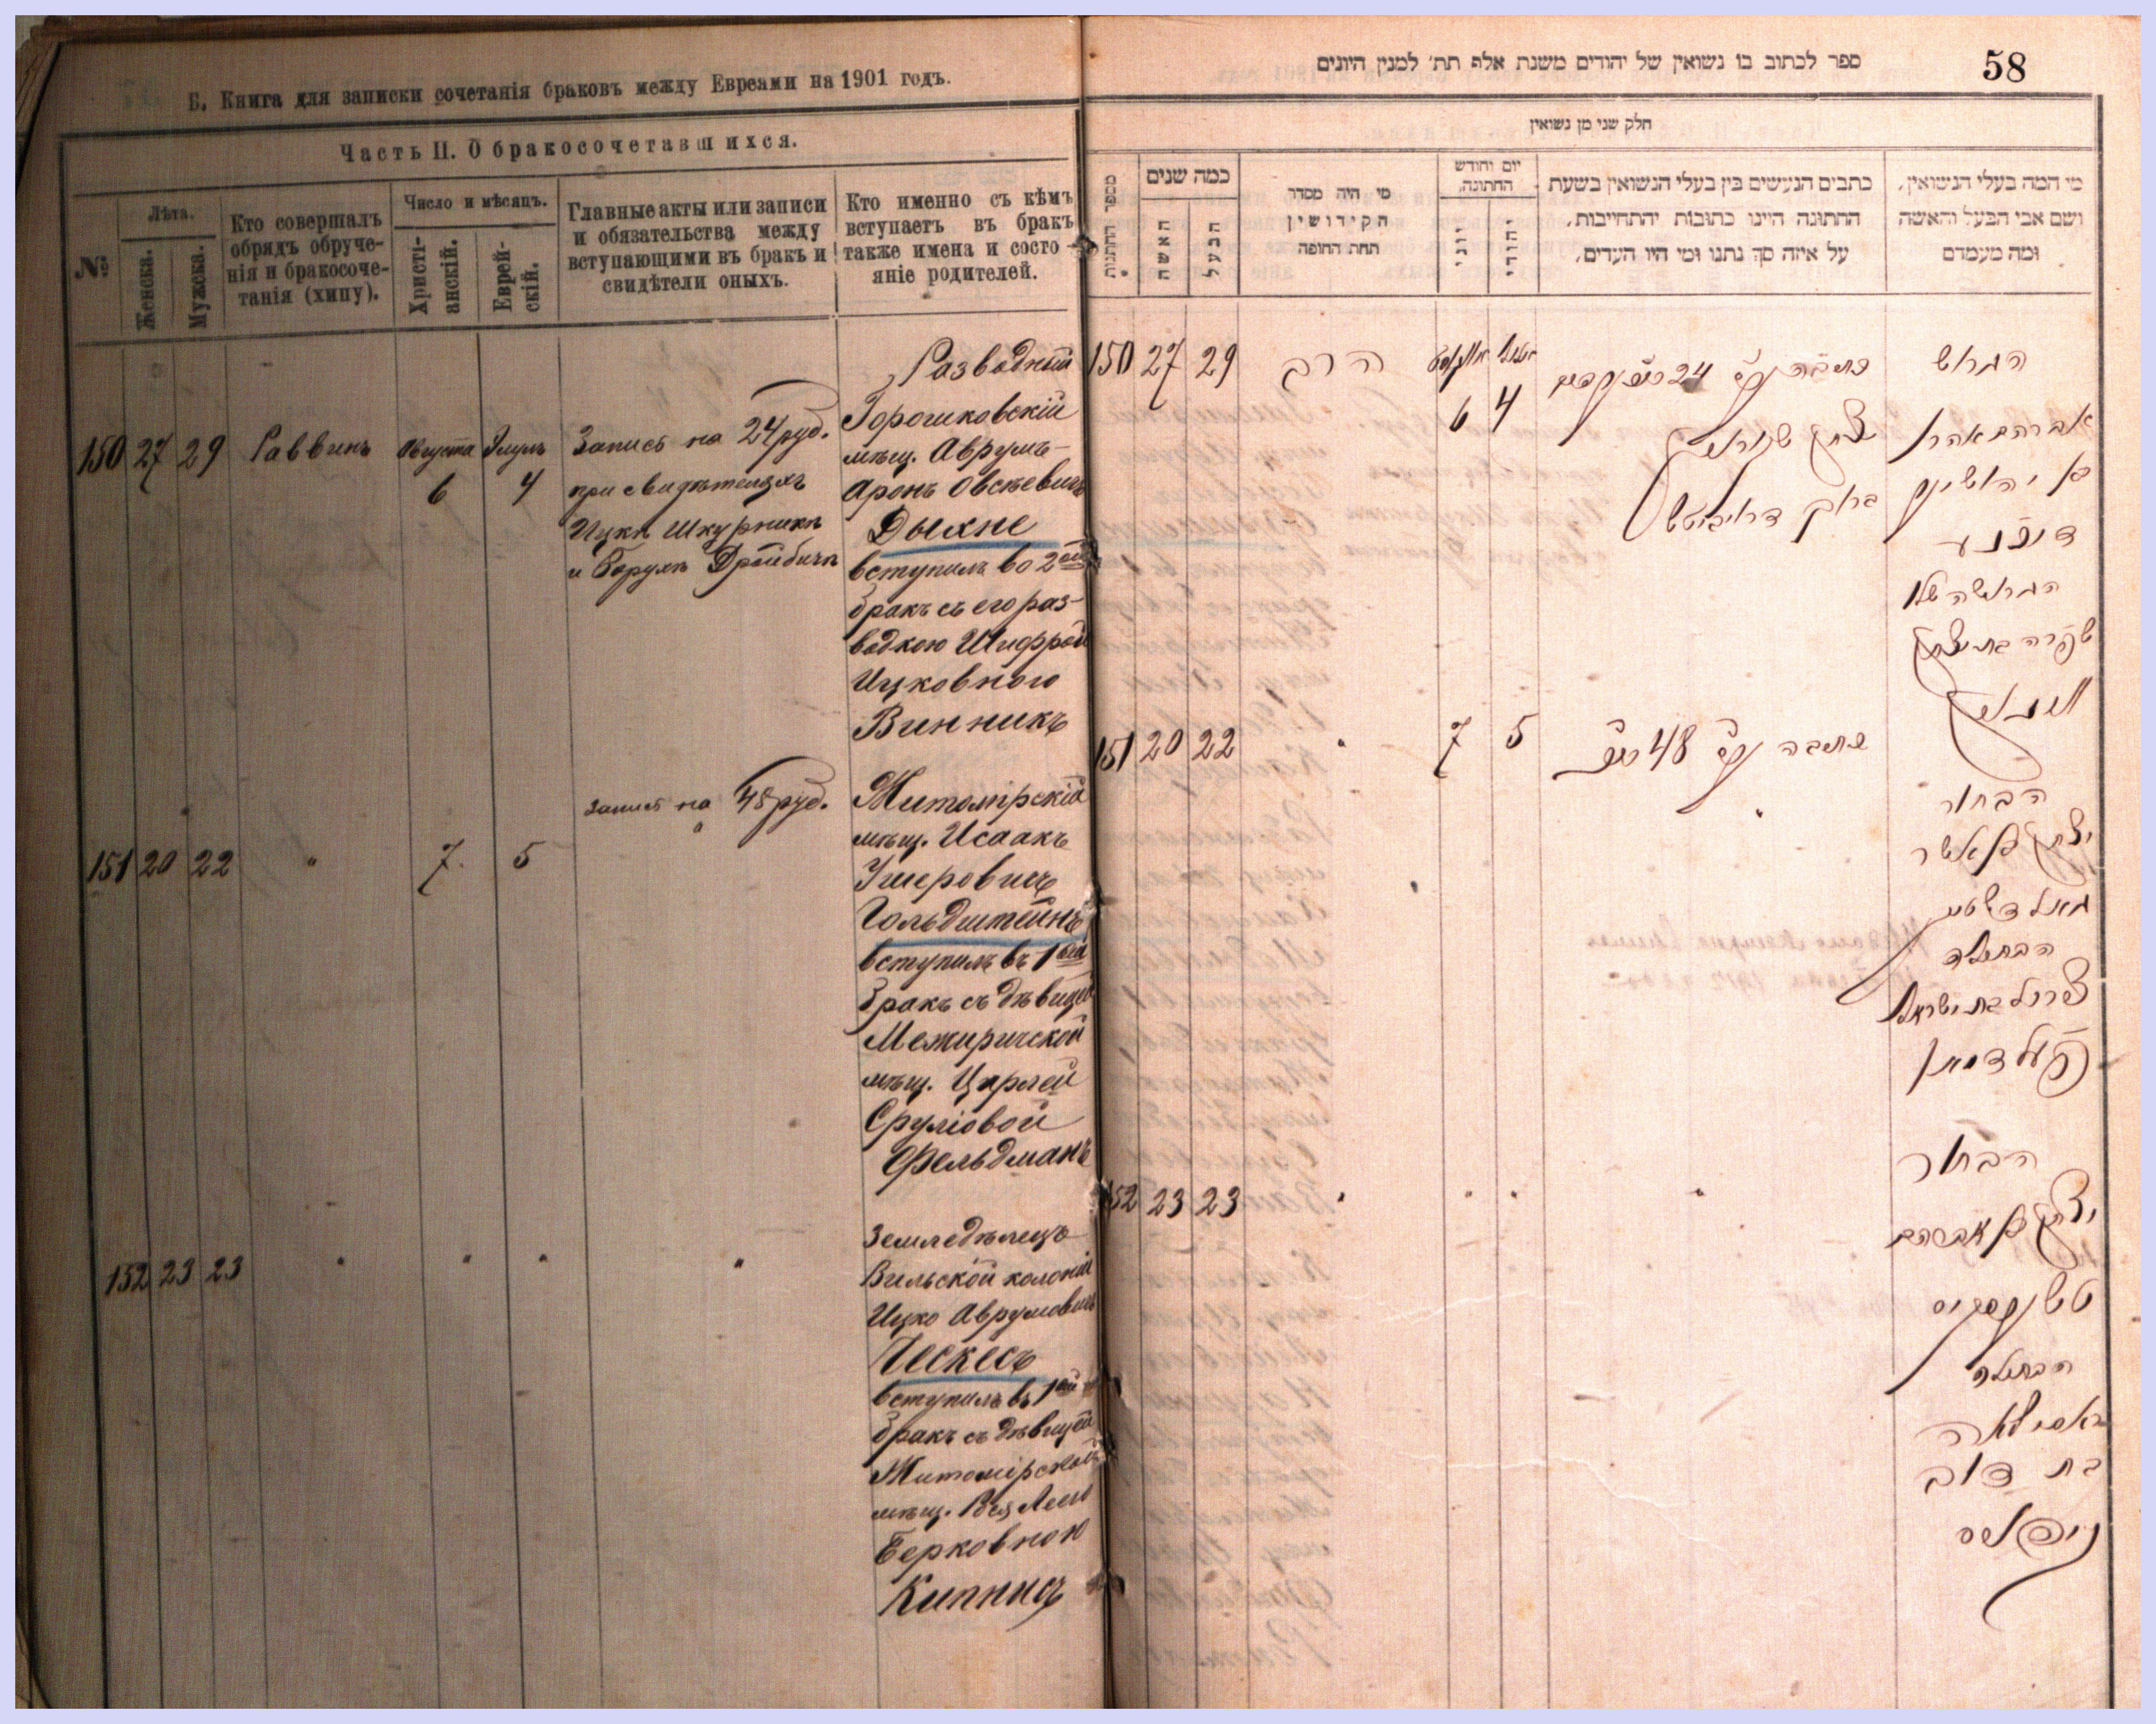 Б. Книга для записки сочетанія браковъ между Евреями на 1901 годъ.
Часть II. О бракосочетавшихся.
№
Лѣта.
Женска.
Мужска.
Кто совершалъ
обрядъ обруче-
нія и бракосоче-
танія (хипу).
Число и мѣсяцъ.
Христі-
анскій.
Еврей-
скій.
Главные акты или записи
и обязательства между
вступающими въ бракъ и
свидѣтели оныхъ.
Кто именно съ кѣмъ
вступаетъ въ бракъ
также имена и состо
яніе родителей.
150 27 29 Раввинъ Августа 6 Элулъ 4
Запись на 24 руб.
при свидѣтеляхъ
Ицкѣ Шкурникѣ
и Борухѣ
Разводный
Горошковскій
мѣщ. Аврумъ-
Аронъ Овсѣевичъ
Дыхне
вступилъ во 2ой
бракъ съ его раз-
водкою Шифрой
Ицковною
Винникъ
151 20 22 " 7 5
Запись на 48 руб.
"
Житомірскій
мѣщ. Исаакъ
Ушеровичъ
Гольдштейнъ
вступилъ въ 1ый
бракъ съ дѣвицей
Межиричской
мѣщ. Цирлей
Сруліовой
Фельдманъ
152 23 23 " " " "
Земледѣлецъ
Вильской колоніи
Ицко Аврумовичъ
Ческесъ
вступилъ въ 1ый
бракъ съ дѣвицей
Житомірской
мѣщ.
Берковною
Кипнисъ
58
ספר לכתוב בו נשואין של יהודים משנת אלף תת׳ למנין היונים
חלק שני מן נשואין
מספר החתונות
כמה שנים
האשה
הבעל
מי היה מסדר
הקידושין
תחת החופה
יום וחודש
החתונה,
יוני
יהודי
כתבים הנעשים בין בעלי הנשואין בשעת
החתונה היינו כתובות יהתחייבות,
על איזה סך נתנו ומי היו העדים,
מי המה בעלי הנשואין,
ושם אבי הבעל והאשה
ומה מעמדם
150 27 29 הרב אויגוסט 6 אלול 4
כתובה ע״ס 24
יצחק שקורניק
ברוך
הגרוש
אברהם אהרן
בן יהושע
דיחנע
הגרושה שלו
שפרה בת יצחק
151 20 22 " 7 5
כתובה ע״ס 48
"
הבחור
יצחק בן אשר
גאלדשטיין
הבתולה
צירל בת ישראל
פעלדמאן
152 23 23 " " " "
הבחור
יצחק בן אברהם
טשעסקיס
הבתולה
בת דוב
קיפניס